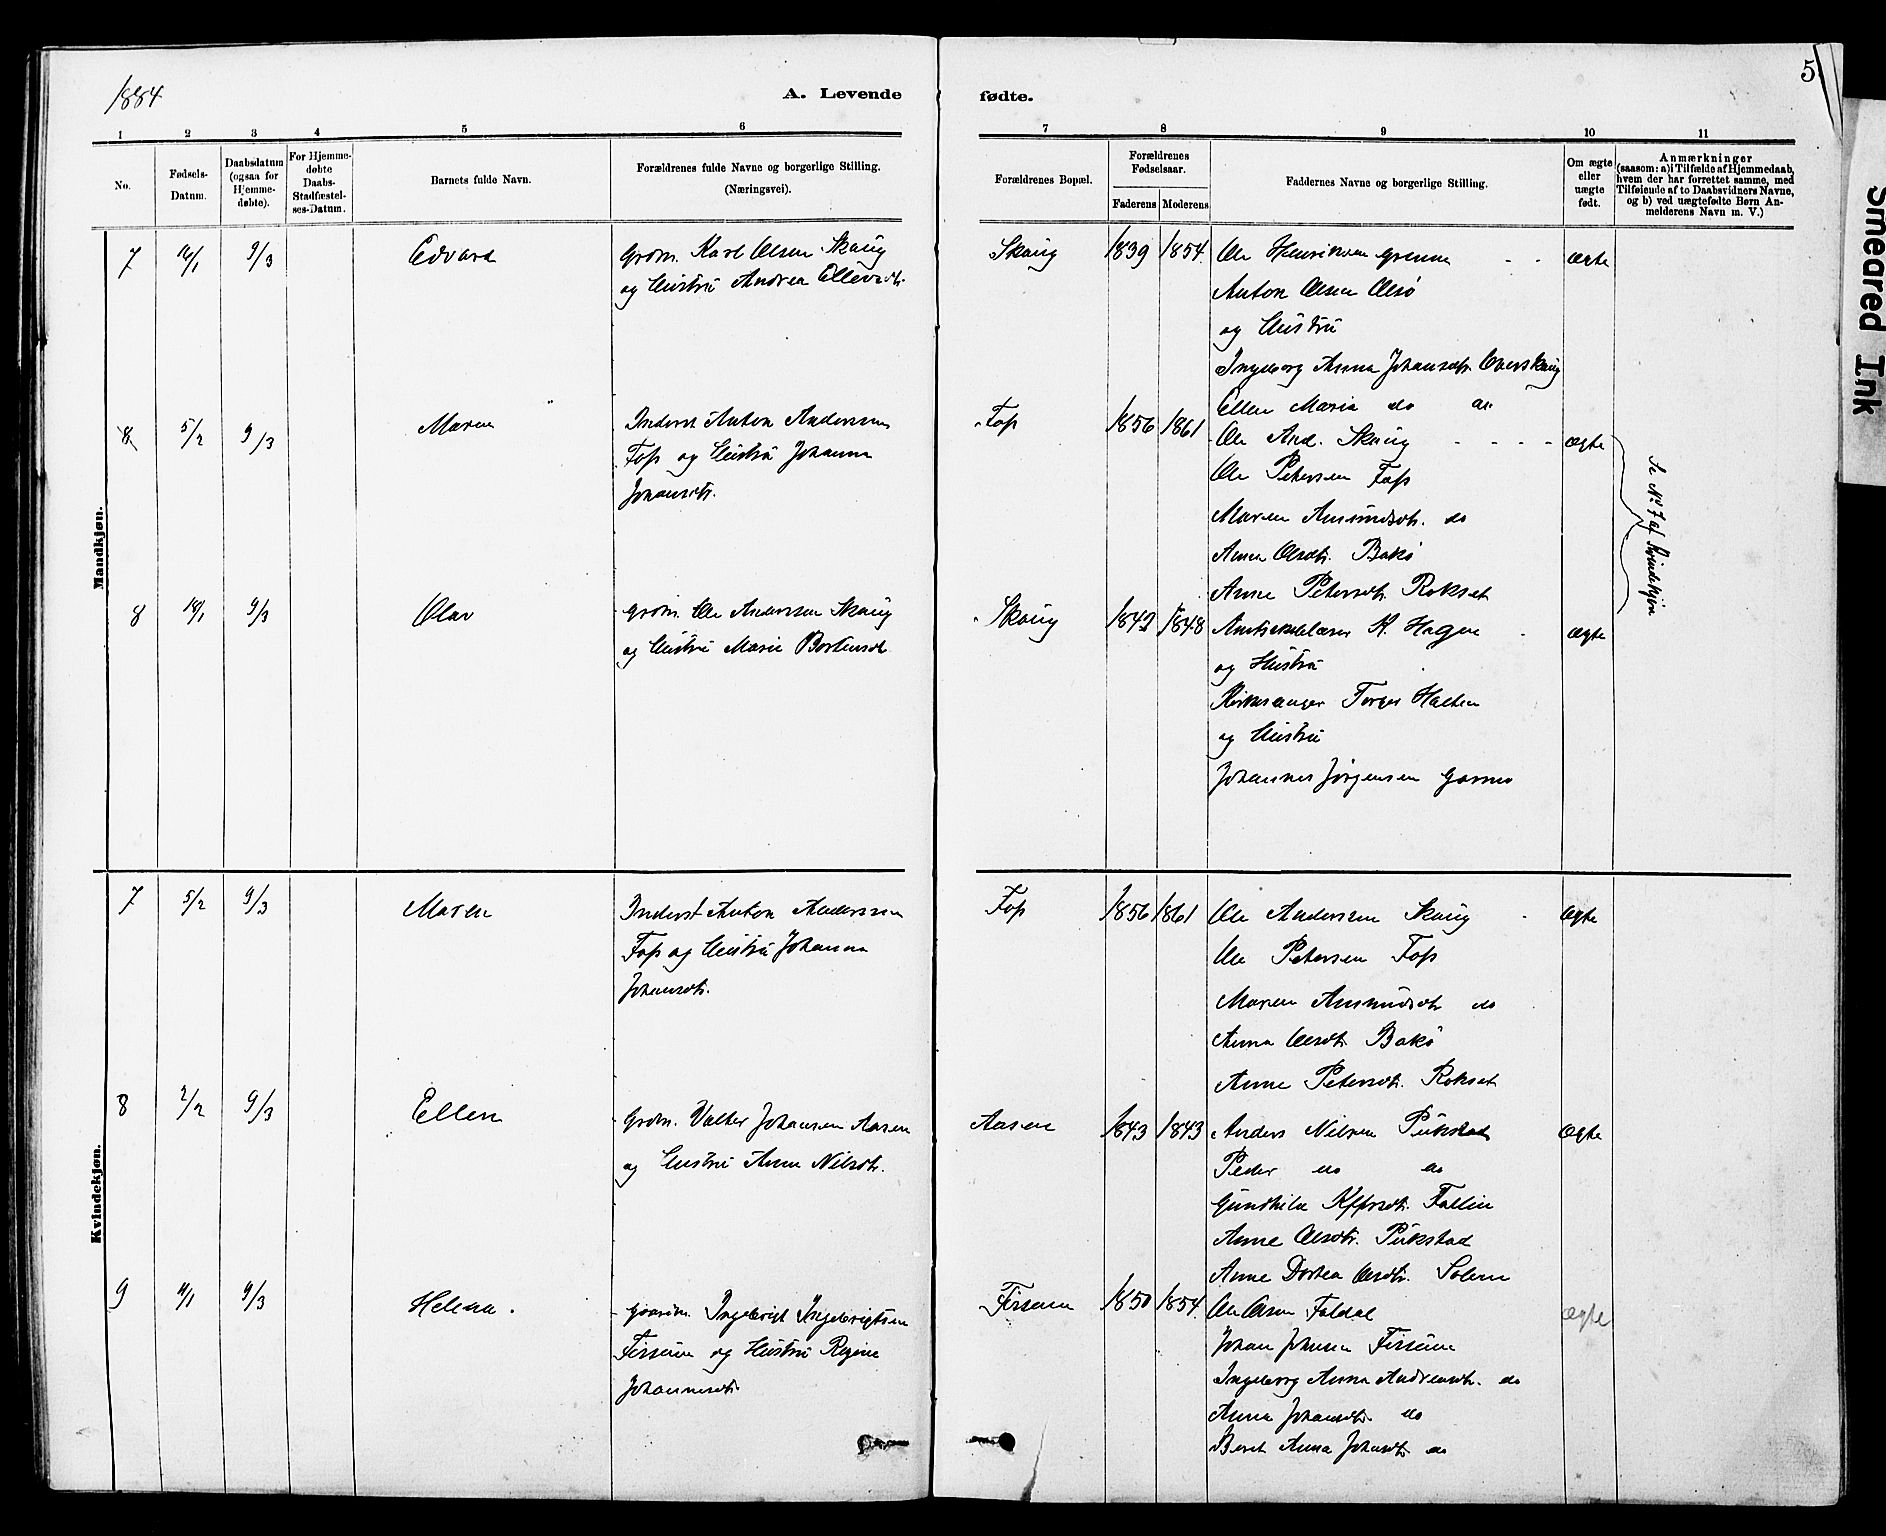 1884
A. Levende fødte.
5
1 2 3 4 5 6 7 8 9 10 11
No.
Fødsels-
Datum.
Daabsdatum
(ogsaa for
Hjemme-
døbte).
For Hjemme-
døbte
Daabs-
Stadfæstel-
ses-Datum.
Barnets fulde Navn.
Forældrenes fulde Navne og borgerlige Stilling.
(Næringsvei).
Forældrenes Bopæl.
Forældrenes
Fødselsaar.
Faderens Moderens
Faddernes Navne og borgerlige Stilling.
Om ægte
eller
uægte
født.
Anmærkninger
(saasom: a) i Tilfælde af Hjemmedaab,
hvem der har forrettet samme, med
Tilføiende af to Daabsvidners Navne,
og b) ved uægtefødte Børn An-
melderens Navn m. V.)
Mandkjøn.
7 9/3 Edvard
Grdm. Karl Olsen Skaug
og Hustru Andrea
Skaug 1839 1854
Ole Henriksen
Anton Olsen
og Hustru
Ingeborg Anna Johansdtr.
Ellen Maria do do
ægte
8 5/2 9/3 Maren
Inderst Anton Andersen
Foss og Hustru Johanna
Johansdtr.
Foss 1856 1861
Ole And. Skaug
Ole Petersen Foss
Maren Amundsdtr. do
Anna Olsdtr. Bakø
Anne Petersdtr. Rokset
ægte
Se No. 7 af Kvindekjøn
8 9/3 Olav
Grdm. Ole Andersen Skaug
og Hustru Marie
Skaug 1848
K. Hagen
og Hustru
Kirkesanger Halten
og Hustru
Johannes Jørgensen
ægte
Kvindekjøn.
7 5/2 9/3 Maren
Inderst Anton Andersen
Foss og Hustru Johanna
Johansdtr.
Foss 1856 1861
Ole Andersen Skaug
Ole Petersen Foss
Maren Amundsdtr. do
Anna Olsdtr. Bakø
Anne Petersdtr. Rokset
ægte
8 2/2 9/3 Ellen
Grdm. Johansen Aasen
og Hustru Anne Nilsdtr.
Aasen 1843 1843
Anders Nilsen Pukstad
Peder do do
Gunhild
Anne Olsdtr. Pukstad
Anne Dortea Olsdtr. Solem
ægte
9 9/3 Helena.
Ingebrigt Ingebrigtsen
og Hustru Regine
Johannesdtr.
1850 1854
Ole Olsen
Johan Johnsen
Ingeborg Anna Andreasdtr. do
Anna Johansdtr. do
Beret Anna Johansdtr. do
ægte
Smeared Ink